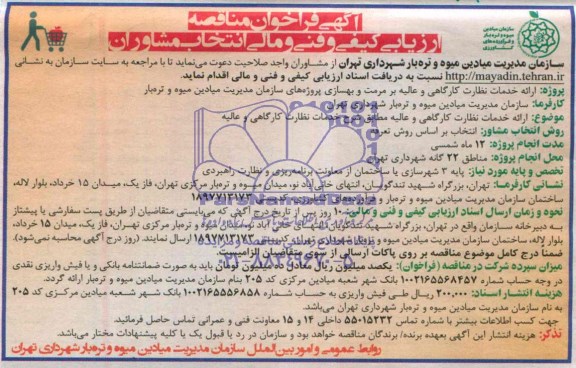 آگهی فراخوان مناقصه
ارزیابی کیفی و فنی و مالی انتخاب مشاوران
سازمان میادین
میوه و تره‌بار
و فرآورده‌های
کشاورزی
سازمان مدیریت میادین میوه و تره‌بار شهرداری تهران از مشاوران واجد صلاحیت دعوت می‌نماید تا با مراجعه به سایت سازمان به نشانی
http://mayadin.tehran.ir نسبت به دریافت اسناد ارزیابی کیفی و فنی و مالی اقدام نماید.
پروژه: ارائه خدمات نظارت کارگاهی و عالیه بر مرمت و بهسازی پروژه‌های سازمان مدیریت میادین میوه و تره‌بار
کارفرما: سازمان مدیریت میادین میوه و تره‌بار شهرداری تهران
موضوع: ارائه خدمات نظارت کارگاهی و عالیه مطابق شرح خدمات نظارت کارگاهی و عالیه
روش انتخاب مشاور: انتخاب بر اساس روش تعرفه
مدت انجام پروژه: ۱۲ ماه شمسی
محل انجام پروژه: مناطق ۲۲ گانه شهرداری تهران
تخصص و پایه مورد نیاز: پایه ۳ شهرسازی یا ساختمان از معاونت برنامه‌ریزی و نظارت راهبردی
نشانی کارفرما: تهران، بزرگراه شهید تندگویان، انتهای خانی آباد نو، میدان میوه و تره‌بار مرکزی تهران، فاز یک، میدان ۱۵ خرداد، بلوار لاله،
ساختمان سازمان مدیریت میادین میوه و تره‌بار شهرداری تهران ۱۸۹۷۷۱۳۱۷۳
نحوه و زمان ارسال اسناد ارزیابی کیفی و فنی و مالی: ۱۰ روز پس از تاریخ درج آگهی که می‌بایستی متقاضیان از طریق پست سفارشی یا پیشتاز
به دبیرخانه سازمان واقع در تهران، بزرگراه شهید تندگویان، انتهای خانی آباد نو، میدان میوه و تره‌بار مرکزی تهران، فاز یک، میدان ۱۵ خرداد،
بلوار لاله، ساختمان سازمان مدیریت میادین میوه و تره‌بار شهرداری تهران کدپستی ۱۸۹۷۷۱۳۱۷۳ ارسال نمایند. (روز درج آگهی محاسبه نمی‌شود).
ضمناً درج کامل موضوع مناقصه بر روی پاکات ارسالی از سوی متقاضیان الزامیست.
میزان سپرده شرکت در مناقصه (فراخوان): یکصد میلیون ریال معادل ده میلیون تومان باید به صورت ضمانتنامه بانکی و یا فیش واریزی نقدی
در وجه حساب شماره ۱۰۰۲۱۶۵۵۶۸۴۵۷ بانک شهر شعبه میادین مرکزی کد ۲۰۵ بنام سازمان مدیریت میادین میوه و تره‌بار ارائه گردد.
هزینه انتشار اسناد: ۲۰۰.۰۰۰ ریال طی فیش واریزی به حساب شماره ۱۰۰۲۱۶۵۵۵۶۸۵۸ بانک شهر شعبه میادین مرکزی کد ۲۰۵
به نام سازمان مدیریت میادین میوه و تره‌بار شهرداری تهران می‌باشد.
جهت کسب اطلاعات بیشتر با شماره تماس ۵۵۰۱۵۲۳۲ داخلی ۱۴ و ۱۵ معاونت فنی و عمرانی تماس حاصل فرمائید.
تذکر: هزینه انتشار این آگهی بعهده برنده/ برندگان مناقصه خواهد بود و سازمان در رد یا قبول یک یا کلیه پیشنهادات مختار می‌باشد.
روابط عمومی و امور بین‌الملل سازمان مدیریت میادین میوه و تره‌بار شهرداری تهران